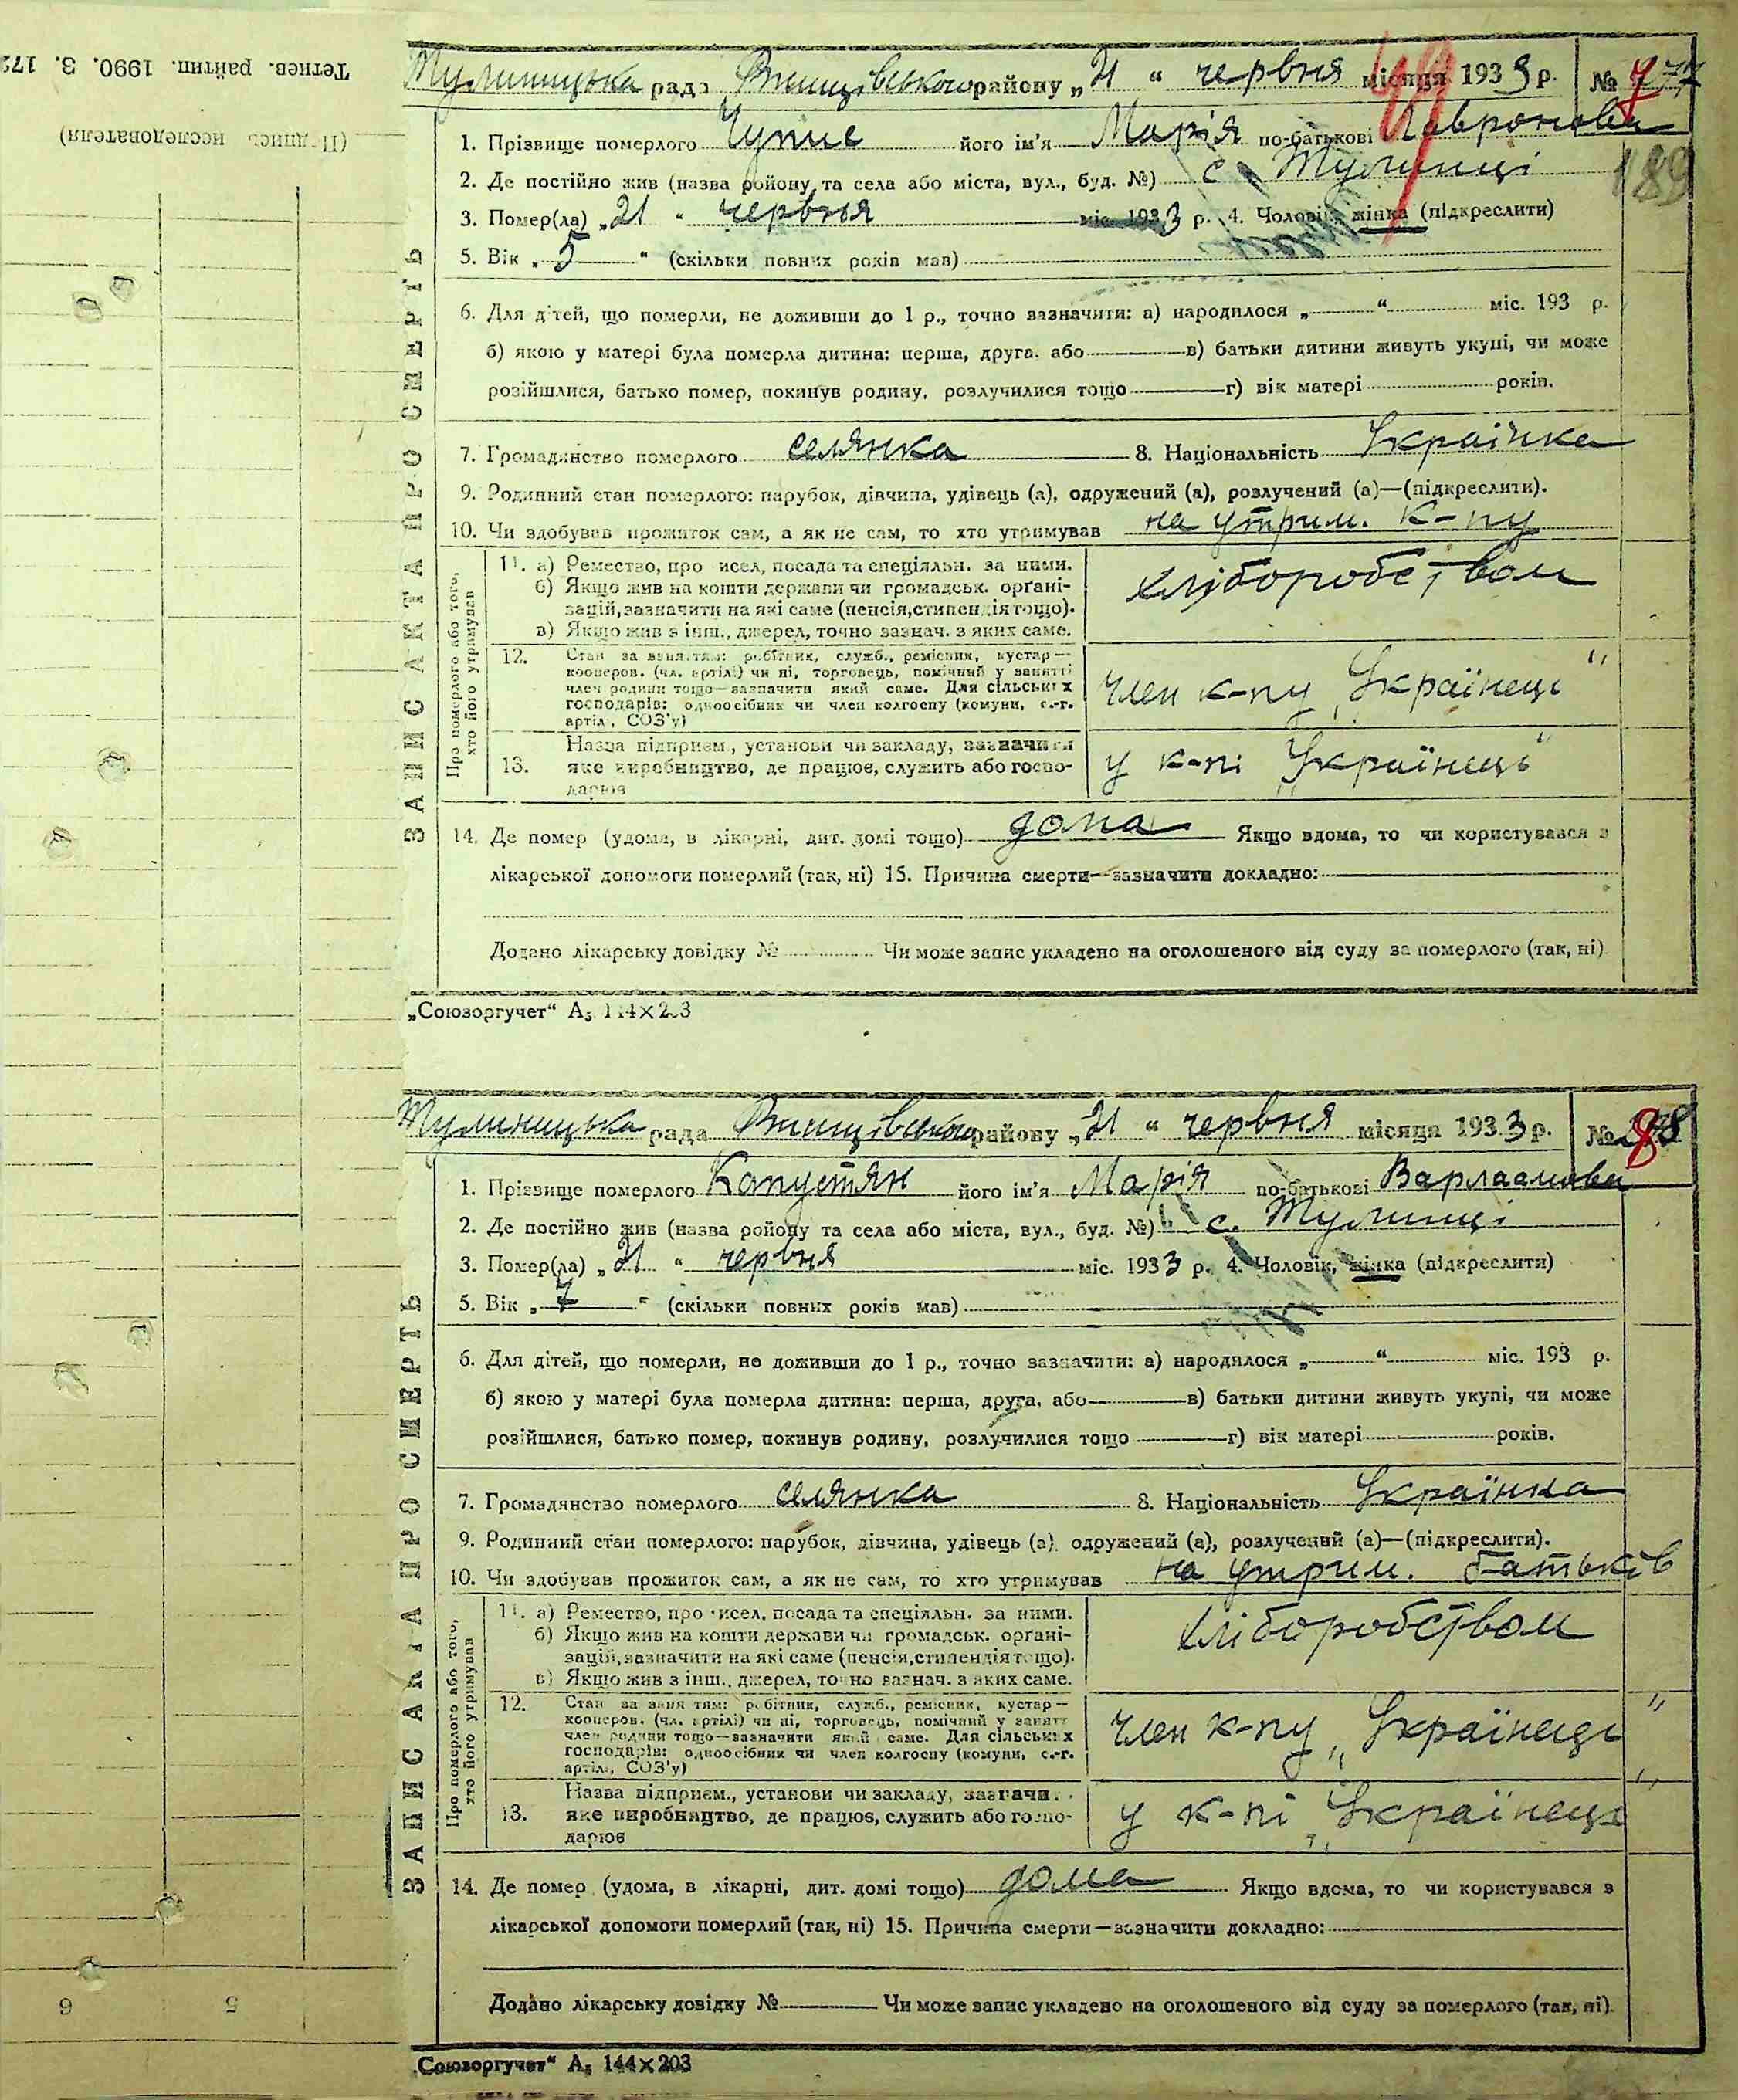 Тетиев. райтип. 1990. З. 172
(Подпись исследователя)
6 5
ЗАПИС АКТА ПРО СМЕРТЬ
Тулиницька рада районy „21“ червня місяця 1933 р. № 7
1. Прізвище померлого його ім'я Марія по-батькові Лавронова
189
2. Де постійно жив (назва ройону та села або міста, вул., буд. №) с. Тулинці
3. Помер(ла) „21“ червня міс. 1933 р. 4. Чоловік, жінка (підкреслити)
5. Вік „5“ (скільки повних років мав)
6. Для дітей, що померли, не доживши до 1 р., точно зазначити: а) народилося „ “ міс. 193 р.
б) якою у матері була померла дитина: перша, друга. або в) батьки дитини живуть укупі, чи може
розійшлися, батько помер, покинув родину, розлучилися тощо г) вік матері років.
7. Громадянство померлого селянка 8. Національність Українка
9. Родинний стан померлого: парубок, дівчина, удівець (а), одружений (а), розлучений (а)—(підкреслити).
10. Чи здобував прожиток сам, а як не сам, то хто утримував на утрим. к-пу
Про померлого або того, хто його утримував
11. а) Ремество, про исел, посада та спеціяльн. за ними.
б) Якщо жив на кошти держави чи громадськ. орґані-
зацій, зазначити на які саме (пенсія, стипендія тощо).
в) Якщо жив з інш., джерел, точно зазнач. з яких саме.
хліборобством
12. Стан за заняттям: робітник, служб., ремісник, кустар—
кооперов. (чл. артілі) чи ні, торговець, помічний у занятті
член родини тощо—зазначити який саме. Для сільських
господарів: одноосібник чи член колгоспу (комуни, с.-г.
артіл., СОЗ'у)
член к-пу „Українець“
13. Назва підприєм., установи чи закладу, зазначити
яке виробництво, де працює, служить або госпо-
дарює
у к-пі „Українець“
14. Де помер (удома, в лікарні, дит. домі тощо) дома Якщо вдома, то чи користувався з
лікарської допомоги померлий (так, ні) 15. Причина смерти—зазначити докладно:
Додано лікарську довідку № Чи може запис укладено на оголошеного від суду за померлого (так, ні).
„Союзоргучет“ А₅ 144×203
ЗАПИС АКТА ПРО СМЕРТЬ
Тулиницька рада району „21“ червня місяця 1933 р. № 8
1. Прізвище померлого Капустян його ім'я Марія по-батькові Варлаамова
2. Де постійно жив (назва ройону та села або міста, вул., буд. №) с. Тулинці
3. Помер(ла) „21“ червня міс. 1933 р. 4. Чоловік, жінка (підкреслити)
5. Вік „7“ (скільки повних років мав)
6. Для дітей, що померли, не доживши до 1 р., точно зазначити: а) народилося „ “ міс. 193 р.
б) якою у матері була померла дитина: перша, друга, або в) батьки дитини живуть укупі, чи може
розійшлися, батько помер, покинув родину, розлучилися тощо г) вік матері років.
7. Громадянство померлого селянка 8. Національність Українка
9. Родинний стан померлого: парубок, дівчина, удівець (а), одружений (а), розлучений (а)—(підкреслити).
10. Чи здобував прожиток сам, а як не сам, то хто утримував на утрим. батьків
Про померлого або того, хто його утримував
11. а) Ремество, про исел, посада та спеціяльн. за ними.
б) Якщо жив на кошти держави чи громадськ. орґані-
зацій, зазначити на які саме (пенсія, стипендія тощо).
в) Якщо жив з інш., джерел, точно зазнач. з яких саме.
хліборобством
12. Стан за заняттям: робітник, служб., ремісник, кустар—
кооперов. (чл. артілі) чи ні, торговець, помічний у занятт
член родини тощо—зазначити який саме. Для сільських
господарів: одноосібник чи член колгоспу (комуни, с.-г.
артіл., СОЗ'у)
член к-пу „Українець“
13. Назва підприєм., установи чи закладу, зазначи.
яке виробництво, де працює, служить або госпо-
дарює
у к-пі „Українець“
14. Де помер (удома, в лікарні, дит. домі тощо) дома Якщо вдома, то чи користувався з
лікарської допомоги померлий (так, ні) 15. Причина смерти—зазначити докладно:
Додано лікарську довідку № Чи може запис укладено на оголошеного від суду за померлого (так, ні).
„Союзоргучет“ А₅ 144×203